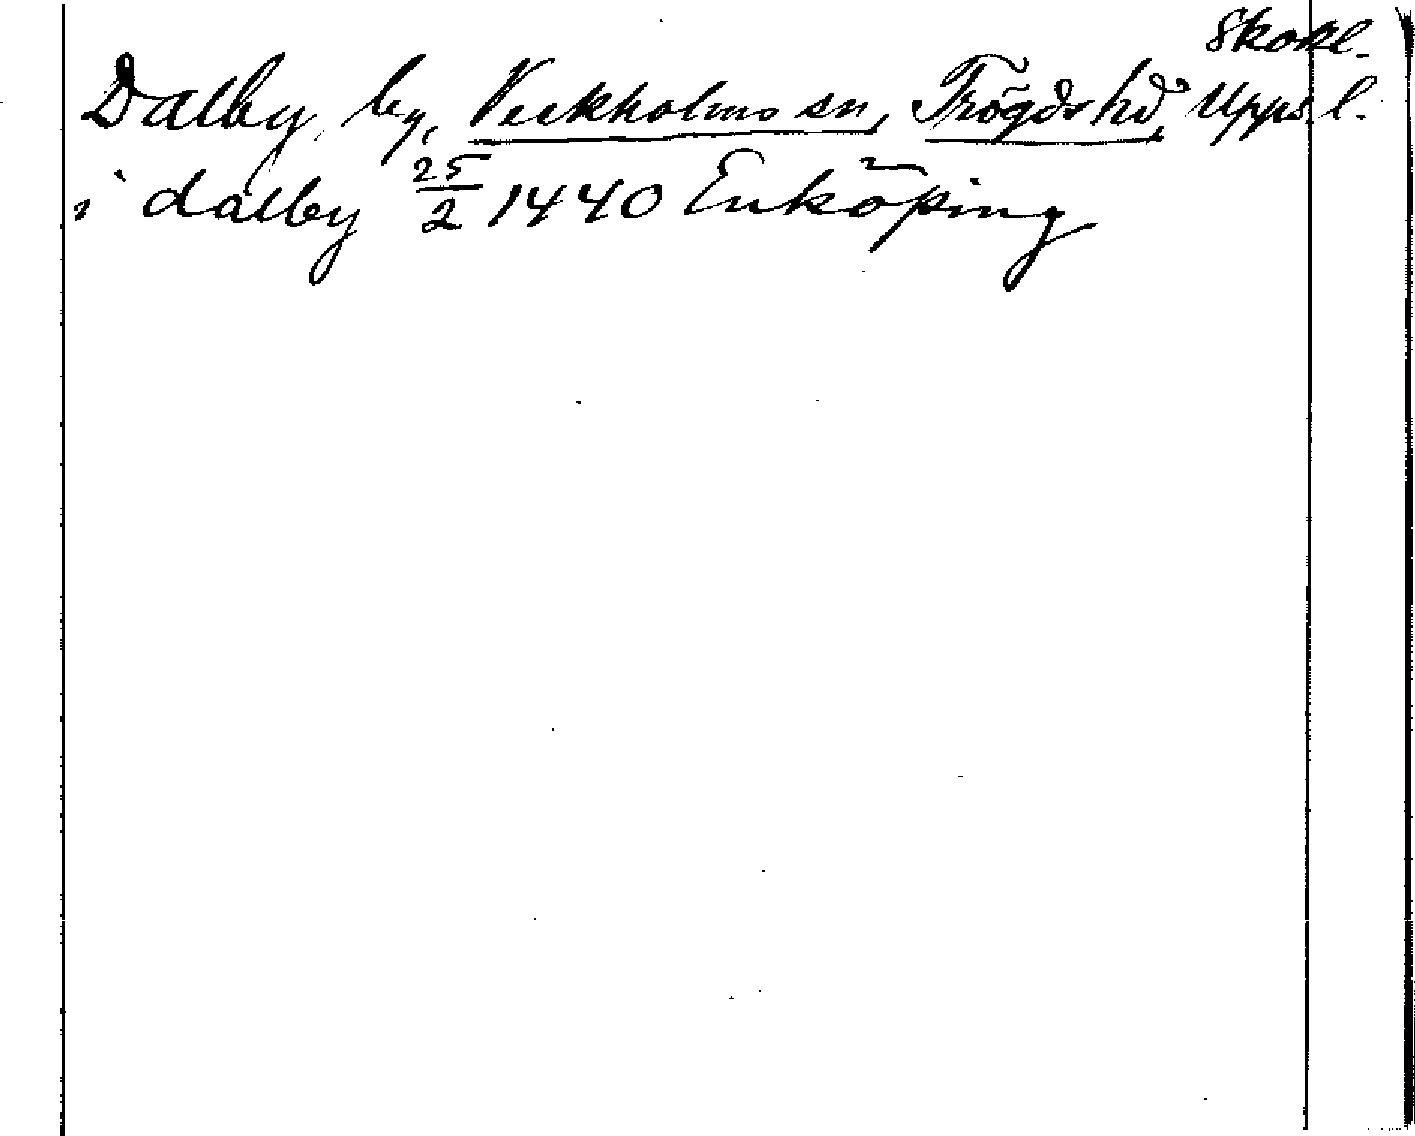 Skokl.
Dalby, by, Veckholms sn, Trögds hd, Upps. l.
i dalby 25/2 1440 Enköping